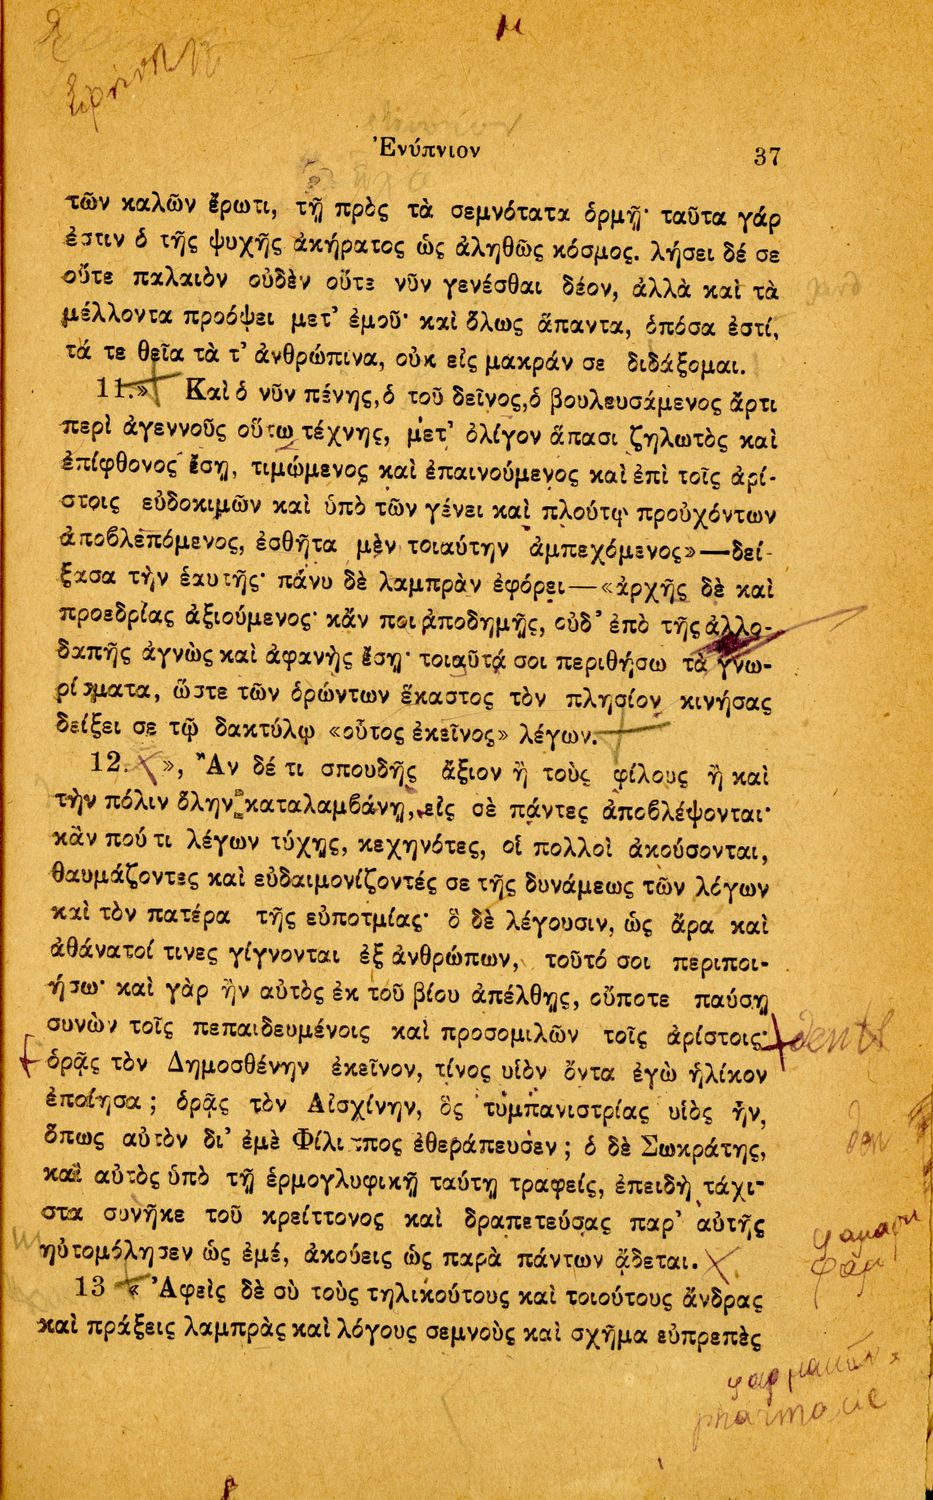 Ἐνύπνιον 37
τῶν καλῶν ἔρωτι, τῇ πρὸς τὰ σεμνότατα ὁρμῇ· ταῦτα γάρ
ἐστιν ὁ τῆς ψυχῆς ἀκήρατος ὡς ἀληθῶς κόσμος. λήσει δέ σε
οὔτε παλαιὸν οὐδὲν οὔτε νῦν γενέσθαι δέον, ἀλλὰ καὶ τὰ
μέλλοντα προόψει μετ' ἐμοῦ· καὶ ὅλως ἅπαντα, ὁπόσα ἐστί,
τά τε θεῖα τὰ τ' ἀνθρώπινα, οὐκ εἰς μακράν σε διδάξομαι.
11.» Καὶ ὁ νῦν πένης, ὁ τοῦ δεῖνος, ὁ βουλευσάμενος ἄρτι
περὶ ἀγεννοῦς οὕτω τέχνης, μετ' ὀλίγον ἅπασι ζηλωτὸς καὶ
ἐπίφθονος ἔσῃ, τιμώμενος καὶ ἐπαινούμενος καὶ ἐπὶ τοῖς ἀρί-
στοις εὐδοκιμῶν καὶ ὑπὸ τῶν γένει καὶ πλούτῳ προὐχόντων
ἀποβλεπόμενος, ἐσθῆτα μὲν τοιαύτην ἀμπεχόμενος»—δεί-
ξασα τὴν ἑαυτῆς· πάνυ δὲ λαμπρὰν ἐφόρει—«ἀρχῆς δὲ καὶ
προεδρίας ἀξιούμενος· κἄν ποι ἀποδημῇς, οὐδ' ἐπὸ τῆς ἀλλο-
δαπῆς ἀγνὼς καὶ ἀφανὴς ἔσῃ· τοιαῦτά σοι περιθήσω τὰ γνω-
ρίσματα, ὥστε τῶν ὁρώντων ἕκαστος τὸν πλησίον κινήσας
δείξει σε τῷ δακτύλῳ «οὗτος ἐκεῖνος» λέγων.
12. », Ἂν δέ τι σπουδῆς ἄξιον ἢ τοὺς φίλους ἢ καὶ
τὴν πόλιν ὅλην καταλαμβάνῃ, εἰς σὲ πάντες ἀποβλέψονται·
κἂν πού τι λέγων τύχῃς, κεχηνότες, οἱ πολλοὶ ἀκούσονται,
θαυμάζοντες καὶ εὐδαιμονίζοντές σε τῆς δυνάμεως τῶν λόγων
καὶ τὸν πατέρα τῆς εὐποτμίας· ὃ δὲ λέγουσιν, ὡς ἄρα καὶ
ἀθάνατοί τινες γίγνονται ἐξ ἀνθρώπων, τοῦτό σοι περιποι-
ήσω· καὶ γὰρ ἢν αὐτὸς ἐκ τοῦ βίου ἀπέλθῃς, οὔποτε παύσῃ
συνὼν τοῖς πεπαιδευμένοις καὶ προσομιλῶν τοῖς ἀρίστοις·
ὁρᾷς τὸν Δημοσθένην ἐκεῖνον, τίνος υἱὸν ὄντα ἐγὼ ἡλίκον
ἐποίησα ; ὁρᾷς τὸν Αἰσχίνην, ὃς τυμπανιστρίας υἱὸς ἦν,
ὅπως αὐτὸν δι' ἐμὲ Φίλιππος ἐθεράπευσεν ; ὁ δὲ Σωκράτης,
καὶ αὐτὸς ὑπὸ τῇ ἑρμογλυφικῇ ταύτῃ τραφείς, ἐπειδὴ τάχι-
στα συνῆκε τοῦ κρείττονος καὶ δραπετεύσας παρ' αὐτῆς
ηὐτομόλησεν ὡς ἐμέ, ἀκούεις ὡς παρὰ πάντων ᾄδεται.
13 « Ἀφεὶς δὲ σὺ τοὺς τηλικούτους καὶ τοιούτους ἄνδρας
καὶ πράξεις λαμπρὰς καὶ λόγους σεμνοὺς καὶ σχῆμα εὐπρεπὲς
pharmacie